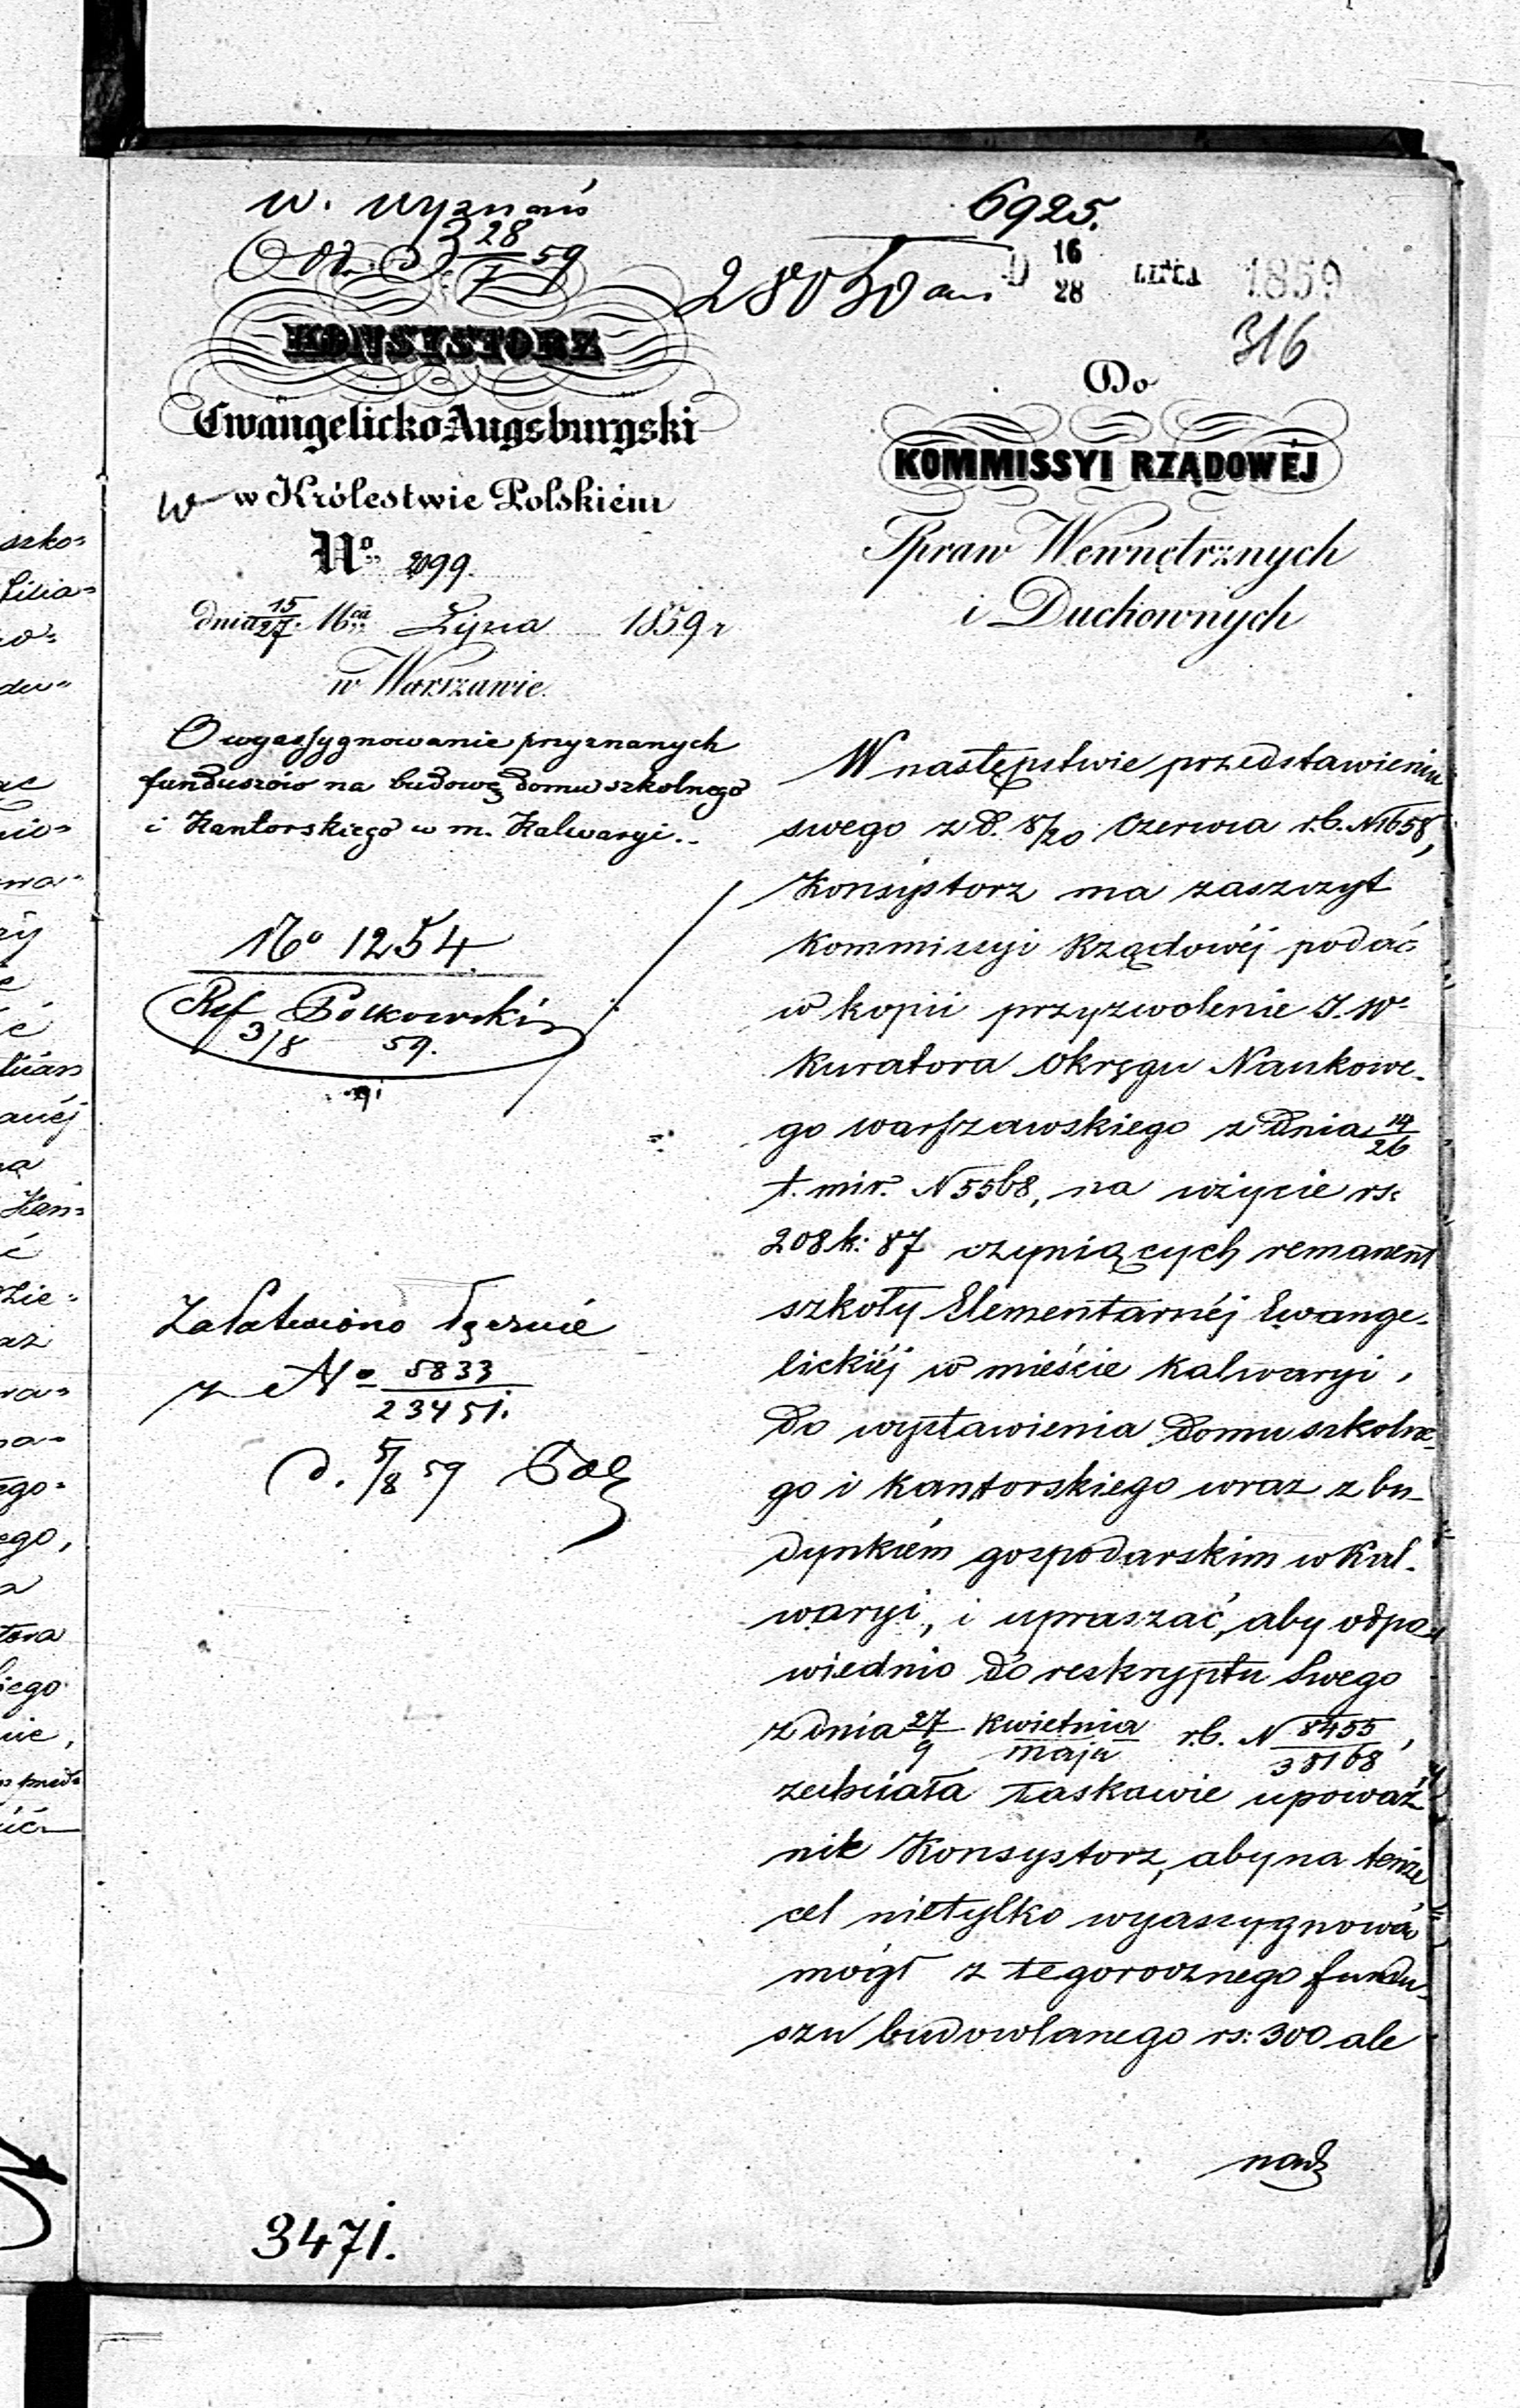 w. wyznań
28
7 59
6925.
28050
D 16
28 LIPCA 1859
316
KONSYSTORZ
Ewangelicko Augsburgski
w Królestwie Polskiém
No 2099.
dnia 15/27 Mca Lipca 1859 r
w Warszawie.
O wyassygnowanie przyznanych
funduszów na budowę domu szkolnego
i Kantorskiego w m. Kalwaryi.
No 1254
Ref Polkowski
3/8 59.
Załatwiono łącznie
z No 5833
23451.
d. 5/8 59 Pol
3471.
Do
KOMMISSYI RZĄDOWÉJ
Spraw Wewnętrznych
i Duchownych
W następstwie przedstawienia
swego z d. 8/20 Czerwca r.b. N 1658,
Konsystorz ma zaszczyt
Kommissyi Rządowéj podać
w kopii przyzwolenie J. W.
Kuratora Okręgu Naukowe-
go warszawskiego z dnia 14/26
t. m i r. N 5568, na użycie rs:
208 k: 87 czyniących remanent
szkoły Elementarnéj Ewange-
lickiéj w mieście Kalwaryi,
do wystawienia domu szkolne-
go i Kantorskiego wraz z bu-
dynkiém gospodarskim w Kal-
waryi, i upraszać, aby odpo-
wiednio do reskryptu Swego
z dnia 27 Kwietnia / 9 maja r.b. N 8455 / 38168,
zechciała łaskawie upoważ-
nić Konsystorz, aby na tenże
cel nietylko wyassygnować
mógł z tegorocznego fundu-
szu budowlanego rs: 300 ale
nadz
szko=
du=
ić
anéj
Kan=
zie=
ego=
ego,
tora
kiego